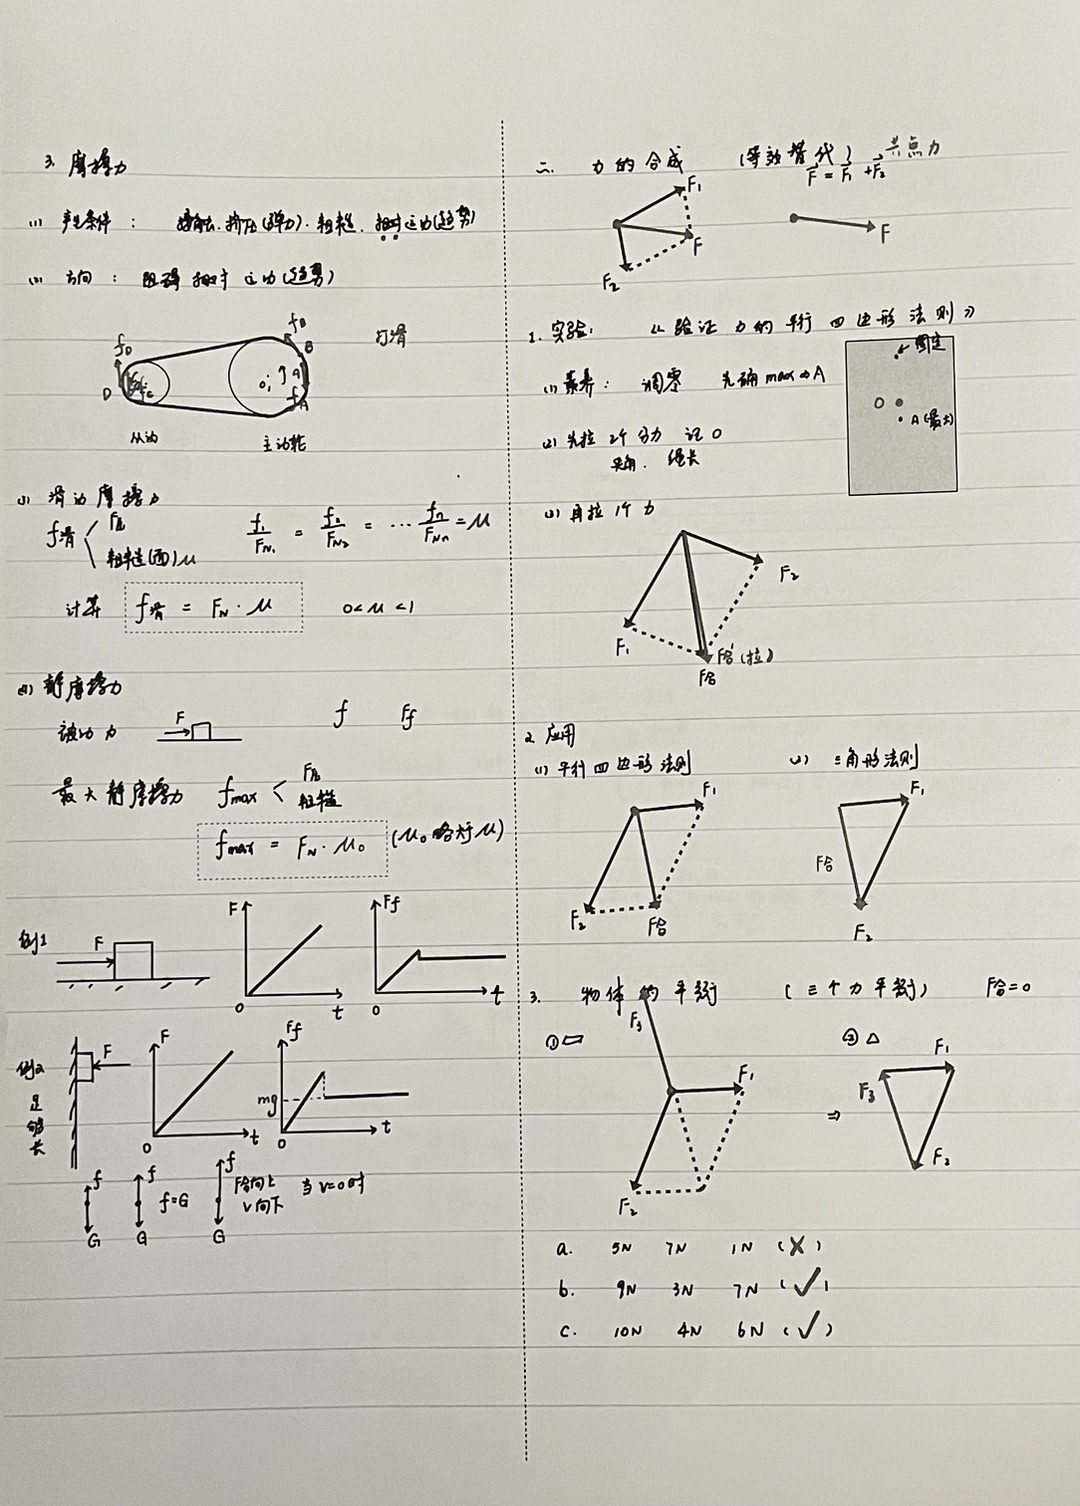 3. 摩擦力
(1) 产生条件： 接触、挤压(弹力)、粗糙、相对运动(趋势)
(2) 方向： 阻碍相对运动(趋势)
fD
D
C
fB
B
O
A
fA
打滑
从动
主动轮
(3) 滑动摩擦力
f滑
F压
粗糙(面)μ
f₁/FN₁ = f₂/FN₂ = … fn/FNn = μ
计算 f滑 = FN · μ 0<μ<1
(4) 静摩擦力
被动力 F f Ff
最大静摩擦力 fmax
F压
粗糙
fmax = FN · μ₀ (μ₀略大于μ)
例1 F
F
0
t
Ff
0
t
例2 足够长
F
F
0
t
Ff
mg
0
t
f
G
f
G
f=G
f
G
F合向上
v向下
当v=0时
二. 力的合成 (等效替代) 共点力
F = F₁ + F₂
F₁
F
F₂
F
1. 实验： 《验证力的平行四边形法则》
(1) 素养： 调零 先确max⇒A
固定
O
A(最大)
(2) 先拉2个分力 记O
夹角、绳长
(3) 再拉1个力
F₂
F₁
F合′(拉)
F合
2. 应用
(1) 平行四边形法则
(2) 三角形法则
F₁
F₂
F合
F₁
F合
F₂
3. 物体的平衡 (三个力平衡) F合=0
①
F₃
F₁
F₂
⇒
② △
F₁
F₃
F₂
a. 5N 7N 1N (×)
b. 9N 3N 7N (✓)
c. 10N 4N 6N (✓)